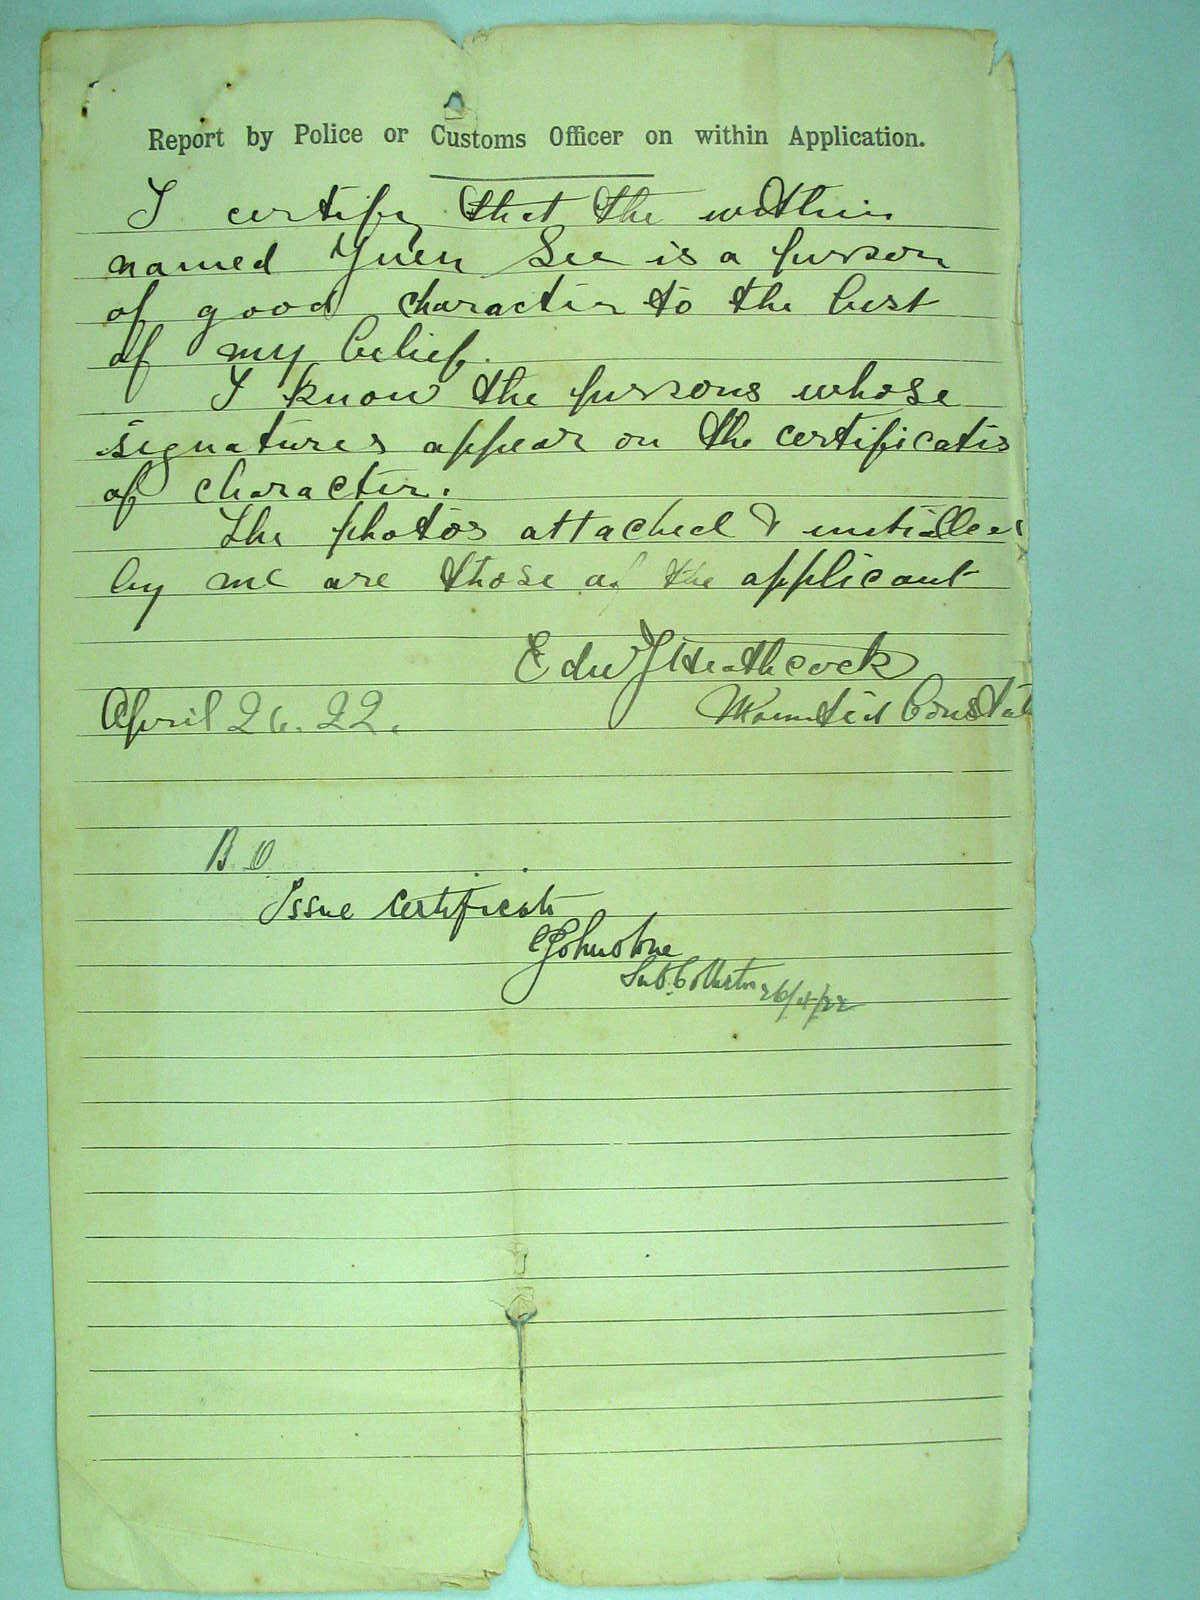 Report by Police or Customs Officer on within Application.
I certify that the within
named Yuen See is a person
of good character to the best
of my belief.
I know the persons whose
signatures appear on the certificates
of character.
The photos attached & initialled
by me are those of the applicant
Edw J Heathcock
Mounted Constab
April 26. 22.
B.O.
Issue Certificate
CJohnstone
Sub. Collector 26/4/22